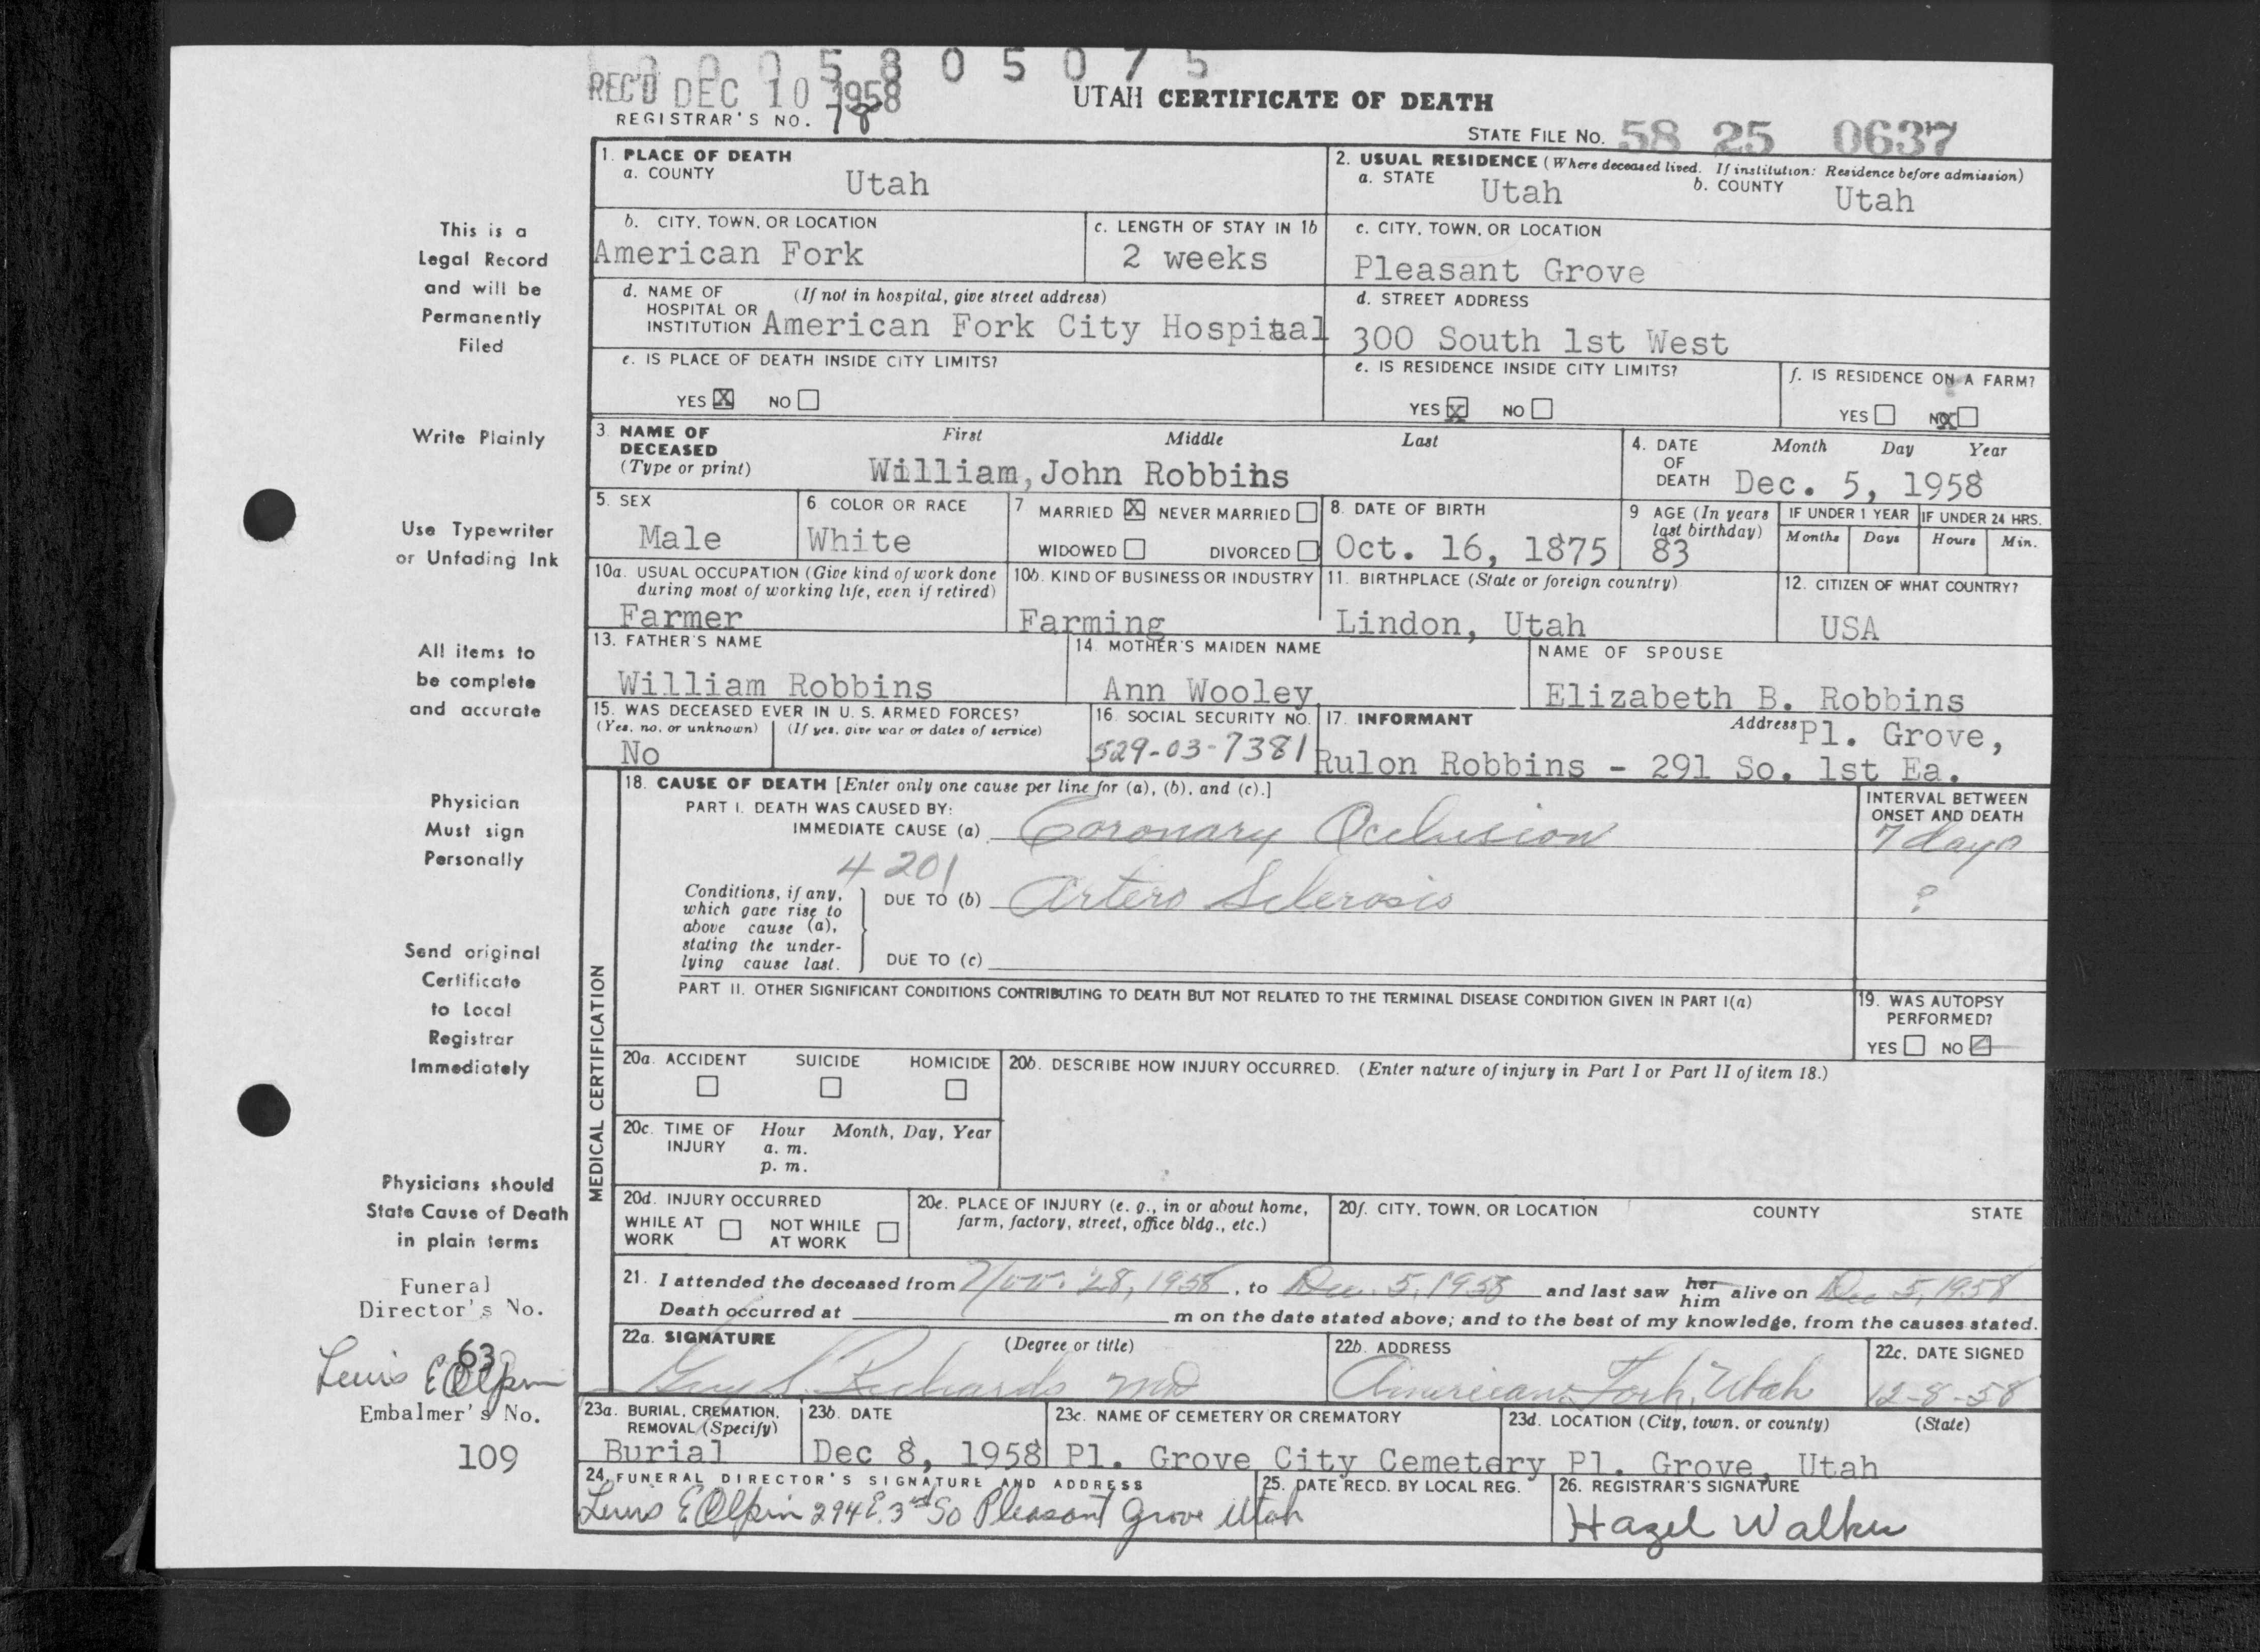 0 0 0 5 8 0 5 0 7 5
REC'D DEC 10 1958
REGISTRAR'S NO. 78
UTAH CERTIFICATE OF DEATH
STATE FILE NO. 58 25 0637
This is a
Legal Record
and will be
Permanently
Filed
Write Plainly
Use Typewriter
or Unfading Ink
All items to
be complete
and accurate
Physician
Must sign
Personally
Send original
Certificate
to Local
Registrar
Immediately
Physicians should
State Cause of Death
in plain terms
Funeral
Director's No.
63
Lewis E Olpin
Embalmer's No.
109
1. PLACE OF DEATH
a. COUNTY
Utah
2. USUAL RESIDENCE (Where deceased lived. If institution: Residence before admission)
a. STATE
Utah
b. COUNTY
Utah
b. CITY, TOWN, OR LOCATION
American Fork
c. LENGTH OF STAY IN 1b
2 weeks
c. CITY, TOWN, OR LOCATION
Pleasant Grove
d. NAME OF (If not in hospital, give street address)
HOSPITAL OR
INSTITUTION American Fork City Hospital
d. STREET ADDRESS
300 South 1st West
e. IS PLACE OF DEATH INSIDE CITY LIMITS?
YES X NO
e. IS RESIDENCE INSIDE CITY LIMITS?
YES X NO
f. IS RESIDENCE ON A FARM?
YES NO X
3. NAME OF
DECEASED
(Type or print)
First Middle Last
William, John Robbins
4. DATE
OF
DEATH
Month Day Year
Dec. 5, 1958
5. SEX
Male
6 COLOR OR RACE
White
7 MARRIED X NEVER MARRIED
WIDOWED DIVORCED
8. DATE OF BIRTH
Oct. 16, 1875
9 AGE (In years
last birthday)
83
IF UNDER 1 YEAR
Months Days
IF UNDER 24 HRS.
Hours Min.
10a. USUAL OCCUPATION (Give kind of work done
during most of working life, even if retired)
Farmer
10b. KIND OF BUSINESS OR INDUSTRY
Farming
11. BIRTHPLACE (State or foreign country)
Lindon, Utah
12. CITIZEN OF WHAT COUNTRY?
USA
13. FATHER'S NAME
William Robbins
14. MOTHER'S MAIDEN NAME
Ann Wooley
NAME OF SPOUSE
Elizabeth B. Robbins
15. WAS DECEASED EVER IN U. S. ARMED FORCES?
(Yes, no, or unknown) (If yes, give war or dates of service)
No
16. SOCIAL SECURITY NO.
529-03-7381
17. INFORMANT
Address Pl. Grove,
Rulon Robbins - 291 So. 1st Ea.
MEDICAL CERTIFICATION
18. CAUSE OF DEATH [Enter only one cause per line for (a), (b), and (c).]
PART I. DEATH WAS CAUSED BY:
IMMEDIATE CAUSE (a) Coronary Occlusion
4201
INTERVAL BETWEEN
ONSET AND DEATH
7 days
Conditions, if any,
which gave rise to
above cause (a),
stating the under-
lying cause last.
DUE TO (b) Artero Sclerosis
?
DUE TO (c)
PART II. OTHER SIGNIFICANT CONDITIONS CONTRIBUTING TO DEATH BUT NOT RELATED TO THE TERMINAL DISEASE CONDITION GIVEN IN PART I(a)
19. WAS AUTOPSY
PERFORMED?
YES NO
20a. ACCIDENT SUICIDE HOMICIDE
20b. DESCRIBE HOW INJURY OCCURRED. (Enter nature of injury in Part I or Part II of item 18.)
20c. TIME OF Hour Month, Day, Year
INJURY a. m.
p. m.
20d. INJURY OCCURRED
WHILE AT
WORK
NOT WHILE
AT WORK
20e. PLACE OF INJURY (e. g., in or about home,
farm, factory, street, office bldg., etc.)
20f. CITY, TOWN, OR LOCATION COUNTY STATE
21. I attended the deceased from Nov. 28, 1958, to Dec. 5, 1958 and last saw her him alive on Dec 5, 1958
Death occurred at m on the date stated above; and to the best of my knowledge, from the causes stated.
22a. SIGNATURE (Degree or title)
Guy S. Richards MD
22b. ADDRESS
American Fork, Utah
22c. DATE SIGNED
12-8-58
23a. BURIAL, CREMATION,
REMOVAL (Specify)
Burial
23b. DATE
Dec 8, 1958
23c. NAME OF CEMETERY OR CREMATORY
Pl. Grove City Cemetery
23d. LOCATION (City, town, or county) (State)
Pl. Grove, Utah
24. FUNERAL DIRECTOR'S SIGNATURE AND ADDRESS
Lewis E Olpin 294 E. 3rd So Pleasant Grove Utah
25. DATE RECD. BY LOCAL REG.
26. REGISTRAR'S SIGNATURE
Hazel Walker